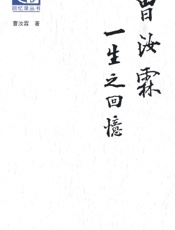 回忆录丛书
曹汝霖 著
曹汝霖
一生之回憶